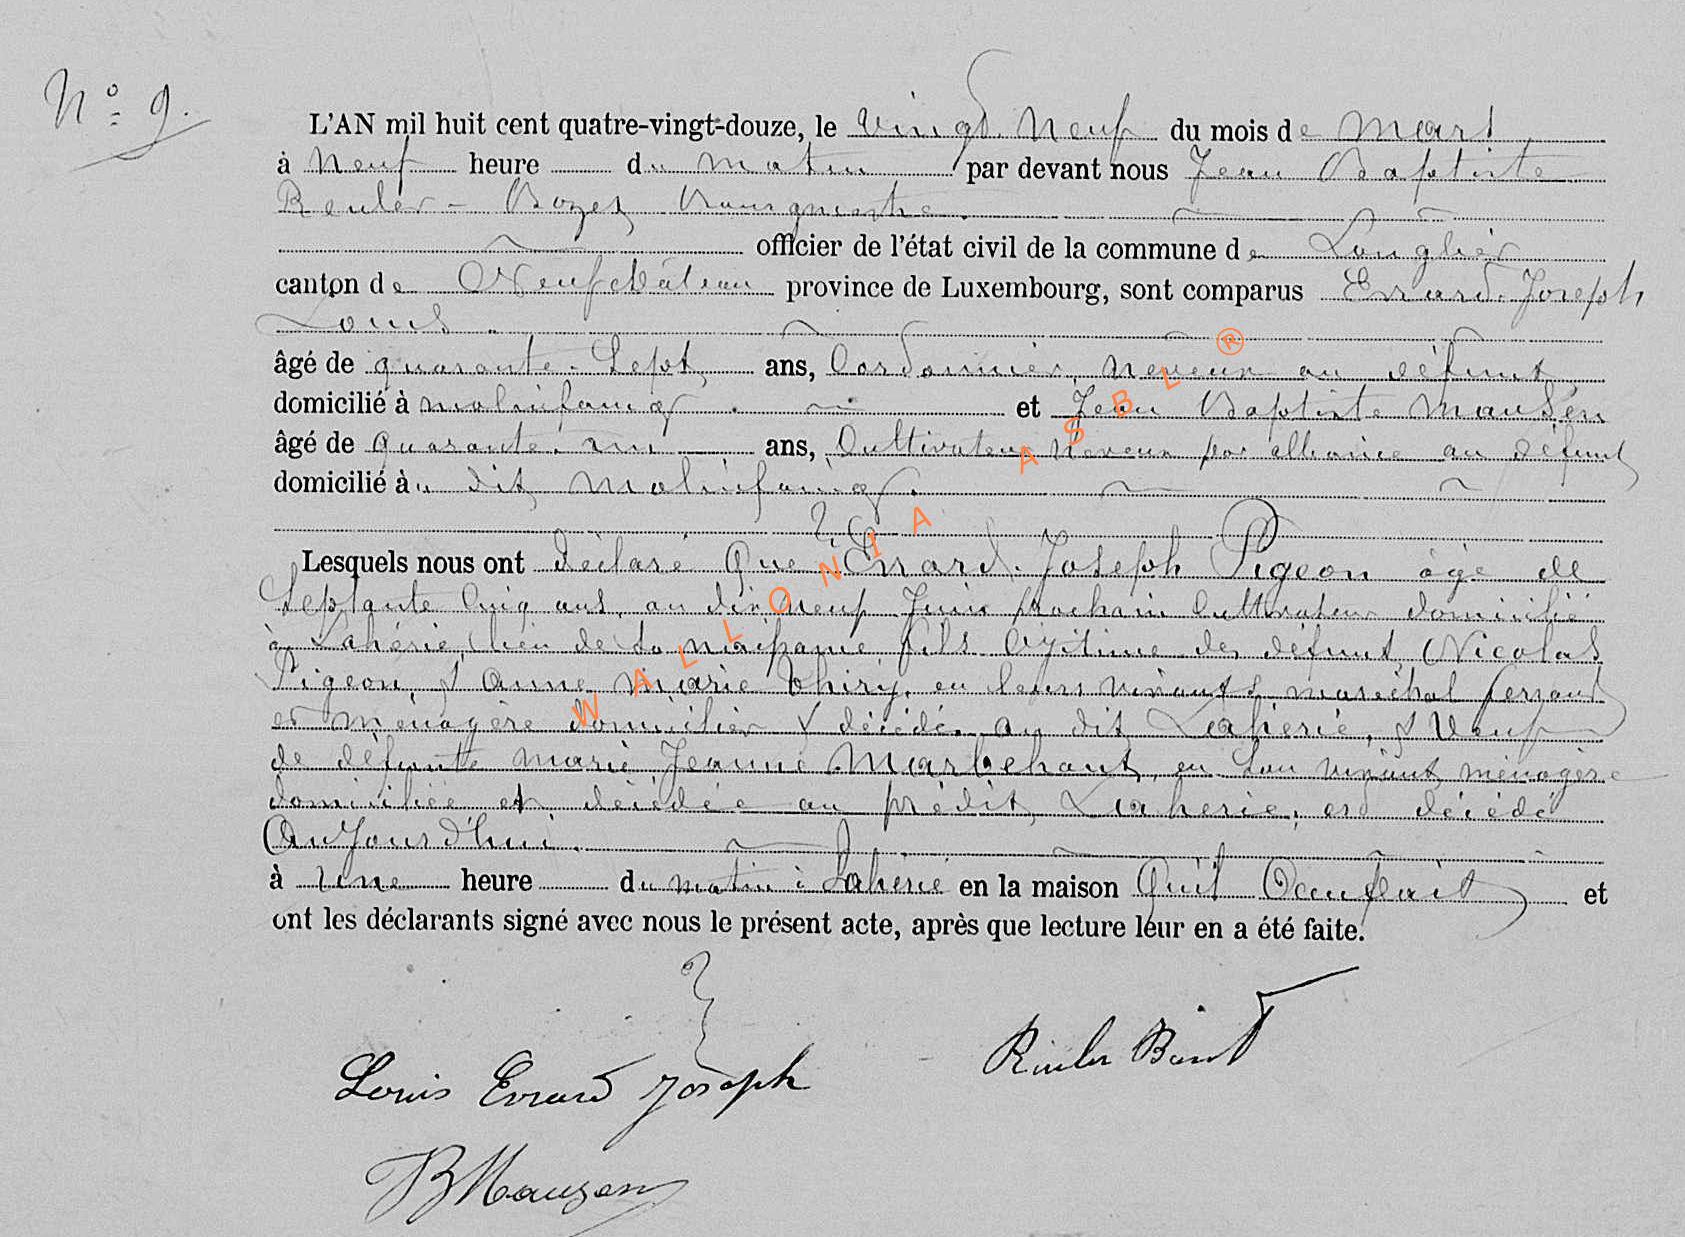 N° 9.
L'AN mil huit cent quatre-vingt-douze, le vingt Neuf du mois de Mars
à Neuf heure du matin par devant nous Jean Baptiste
Reuler - Bozet Bourgmestre.
officier de l'état civil de la commune de Longlier
canton de Neufchâteau province de Luxembourg, sont comparus Errard Joseph
Louis.
âgé de quarante-Sept ans, Cordonnier, neveux au défunt,
domicilié à molinfaing. et Jean Baptiste Mausen
âgé de quarante un ans, Cultivateur, Neveux par alliance au défunt
domicilié à u dit Molinfaing.
Lesquels nous ont déclaré Que Errard Joseph Pigeon âgé de
Septante Cinq ans, au dix neuf Juin prochain Cultivateur domicilié
à Lahérie, lieu de sa naissance fils légitime des défunt, Nicolas
Pigeon, & Anne marie Thiry, en leurs vivants maréchal ferrant
et ménagère domiciliés & décédés au dit Lahérie, & Veuf
de défunte marie Jeanne Marbehant, en son vivant ménagère
domiciliée et décédée au prédit Laherie, est décédé
Aujourd'hui.
à une heure du matin à Laherie en la maison Qu'il Occupait et
ont les déclarants signé avec nous le présent acte, après que lecture leur en a été faite.
Louis Errard Joseph
JBMausen
WALLONIA ASBL ®